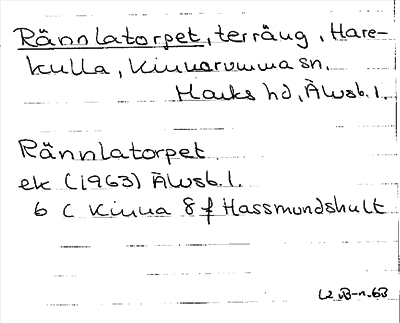 Rännlatorpet, terräng, Hare-
kulla, Kinnarumma sn,
Marks hd, Älvsb. l.
Rännlatorpet
ek (1963) Älvsb. l.
6 C Kinna 8 f Hassmundshult